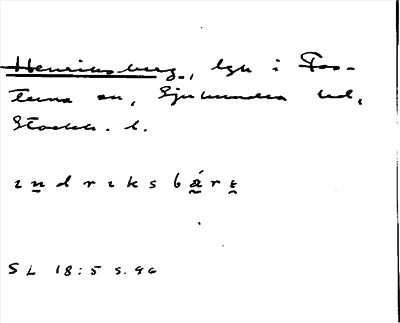 Henriksberg, lgh i Fas-
terna sn, Sjuhundra hd,
Stockh. l.
ındrıksbá̤rɛ̤
SL 18:5 s. 96